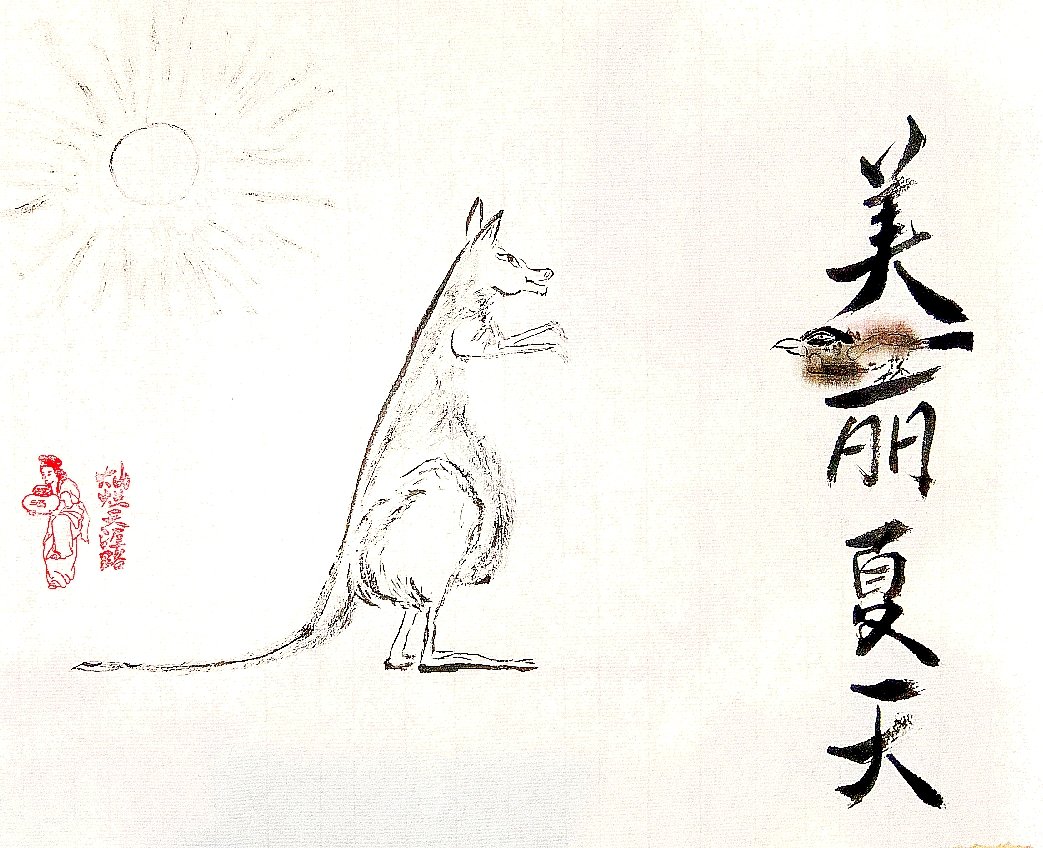 美丽夏天